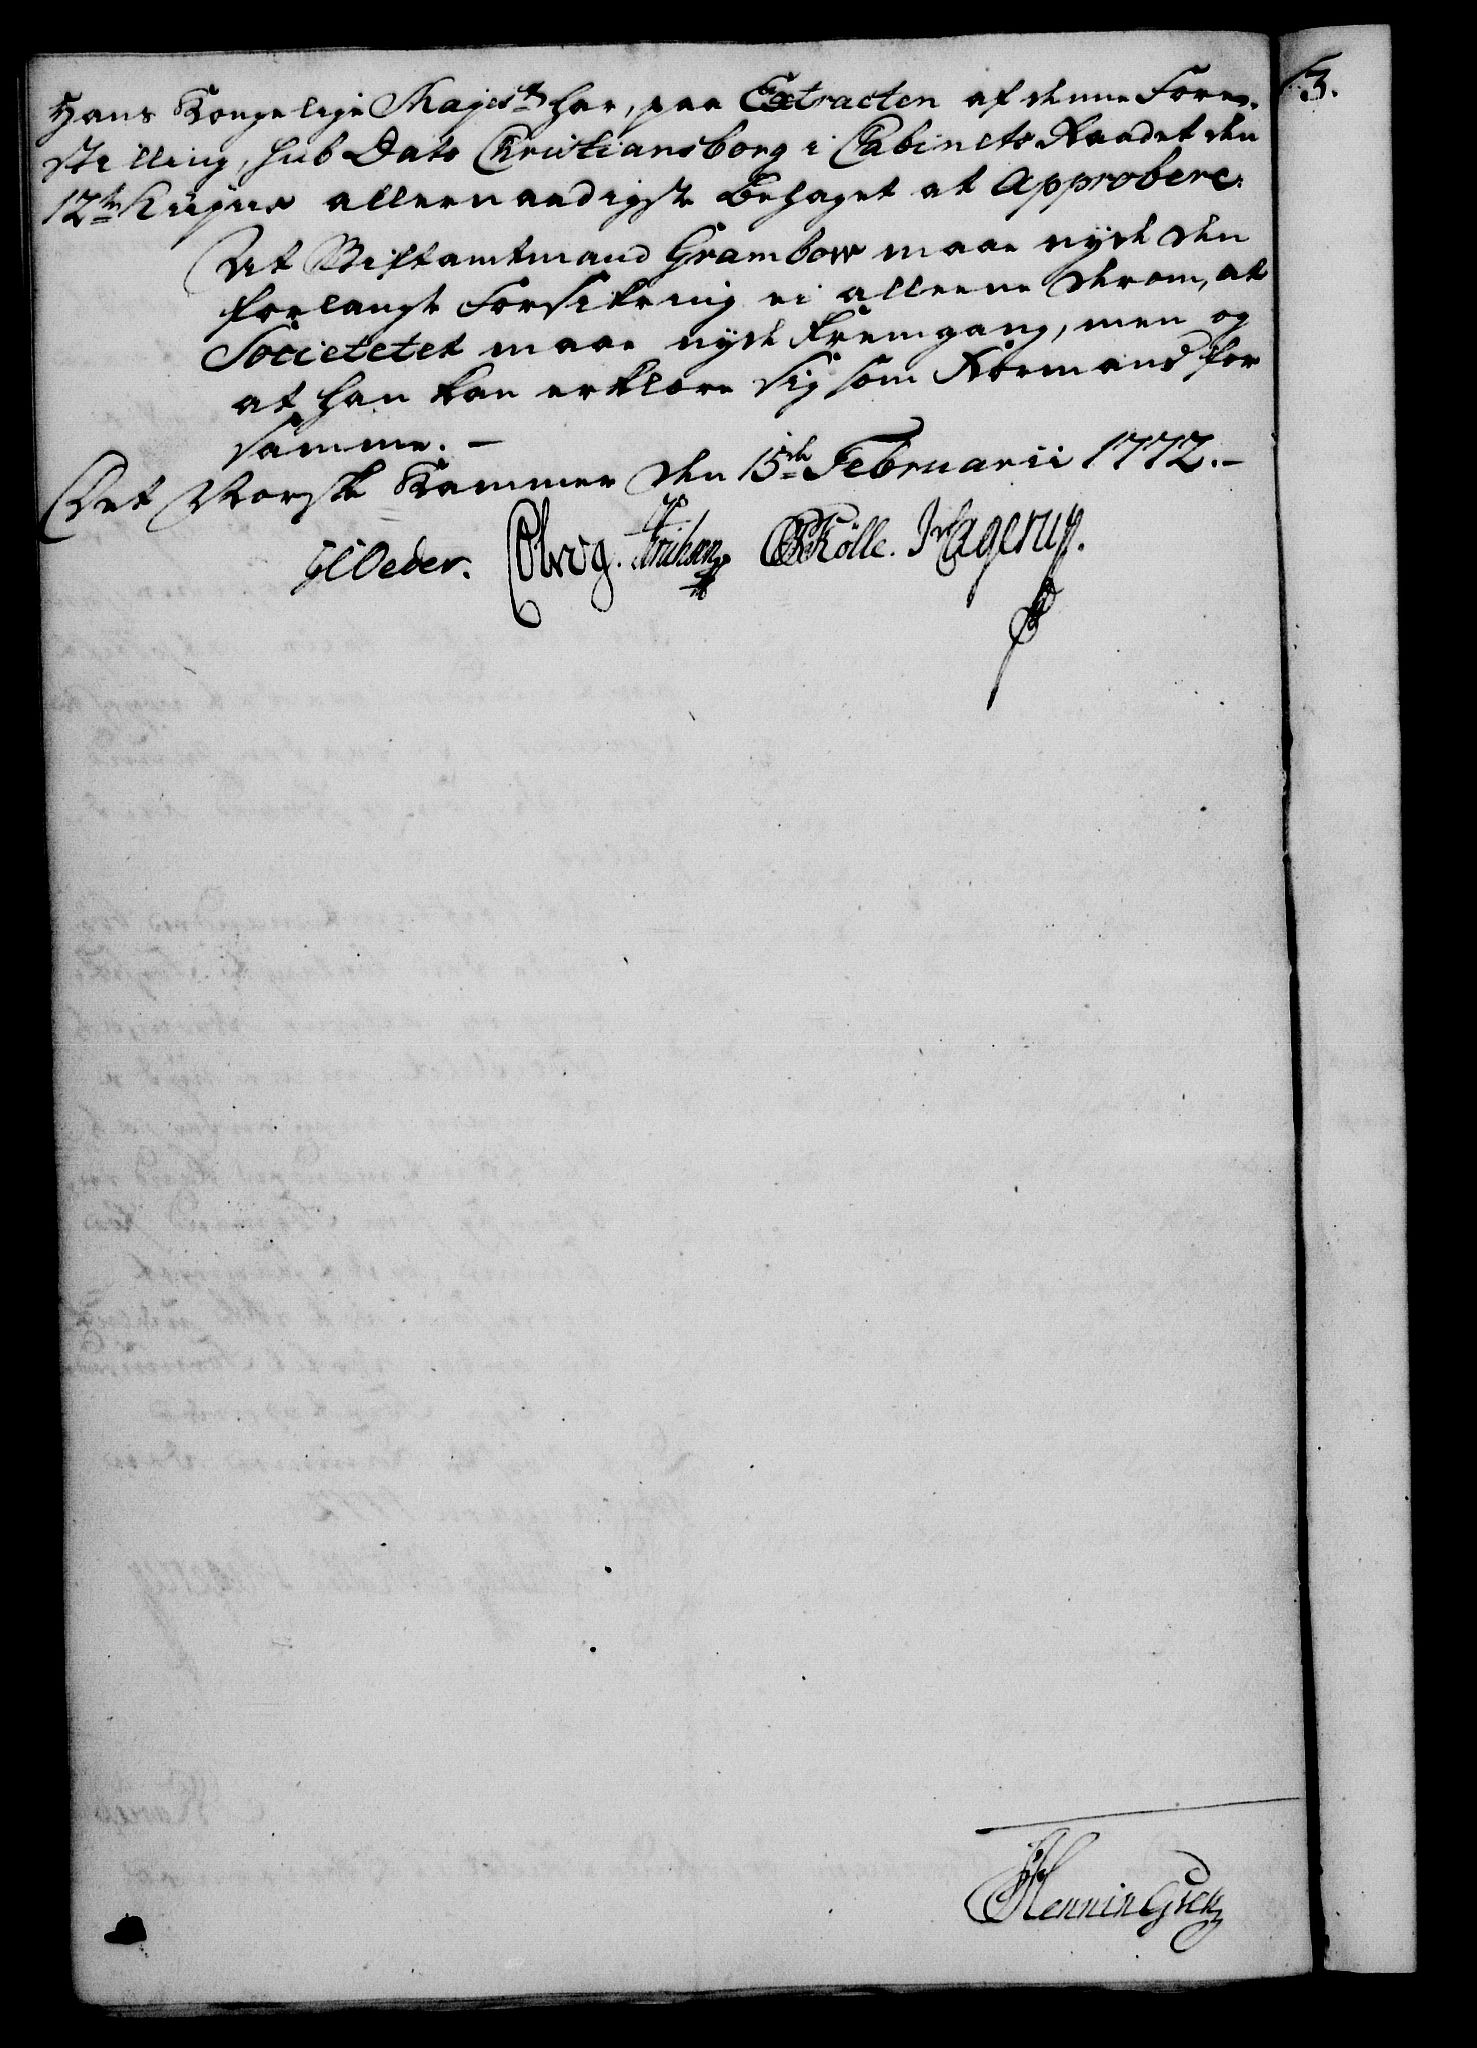 Hans Kongelige Majest: har, paa Extracten af denne Fore-
stilling, sub Dato Christiansborg i Cabinets Raadet den
12te hujus allernaadigst behaget at approbere:
At Stiftamtmand Grambow maae nyde den
forlangte Forsikring ei alleene derom, at
Societetet maae nyde Fremgang, men og
at han kan erklære sig som Formand for
samme. —
Det Norske Kammer den 15de Februarii 1772. —
GCOeder. Elvog. PSKölle. JHagerup.
13.